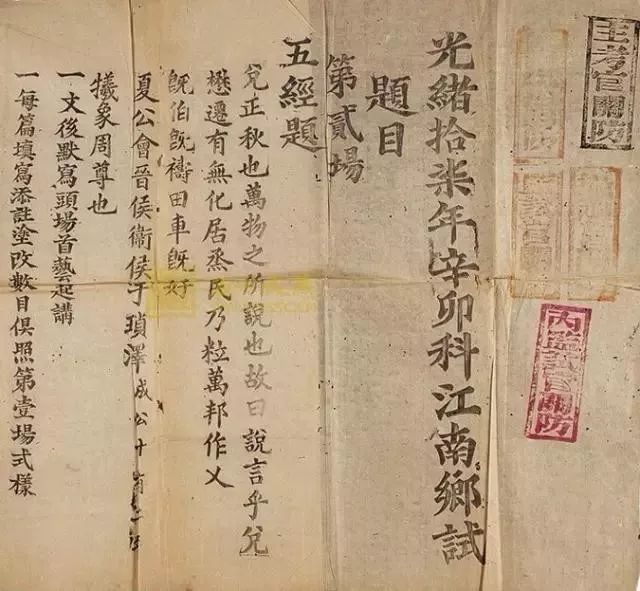 主考官關防
內監試官關防
光緒拾柒年辛卯科江南鄉試
題目
第貳場
五經題
兌正秋也萬物之所說也故曰說言乎兌
懋遷有無化居烝民乃粒萬邦作乂
既伯既禱田車既好
夏公會晉侯衛侯于瑣澤 成公十有二年
犧象周尊也
一文後默寫頭場首藝起講
一每篇填寫添註塗改數目俱照第壹場式樣